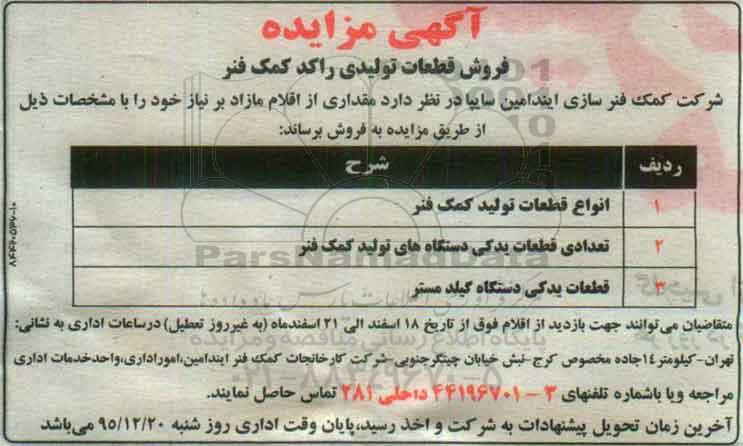 آگهی مزایده
فروش قطعات تولیدی راکد کمک فنر
شرکت کمک فنر سازی ایندامین سایپا در نظر دارد مقداری از اقلام مازاد بر نیاز خود را با مشخصات ذیل
از طریق مزایده به فروش برساند:
ردیف شرح
۱ انواع قطعات تولید کمک فنر
۲ تعدادی قطعات یدکی دستگاه های تولید کمک فنر
۳ قطعات یدکی دستگاه گیلد مستر
متقاضیان می‌توانند جهت بازدید از اقلام فوق از تاریخ ۱۸ اسفند الی ۲۱ اسفندماه (به غیر روز تعطیل) در ساعات اداری به نشانی:
تهران-کیلومتر ۱۴ جاده مخصوص کرج-نبش خیابان چیتگر جنوبی-شرکت کارخانجات کمک فنر ایندامین، امور اداری، واحد خدمات اداری
مراجعه ویا باشماره تلفنهای ۳-۴۴۱۹۶۷۰۱ داخلی ۲۸۱ تماس حاصل نمایند.
آخرین زمان تحویل پیشنهادات به شرکت و اخذ رسید، پایان وقت اداری روز شنبه ۹۵/۱۲/۲۰ می‌باشد
ParsNamadData
پایگاه اطلاع رسانی مناقصه و مزایده